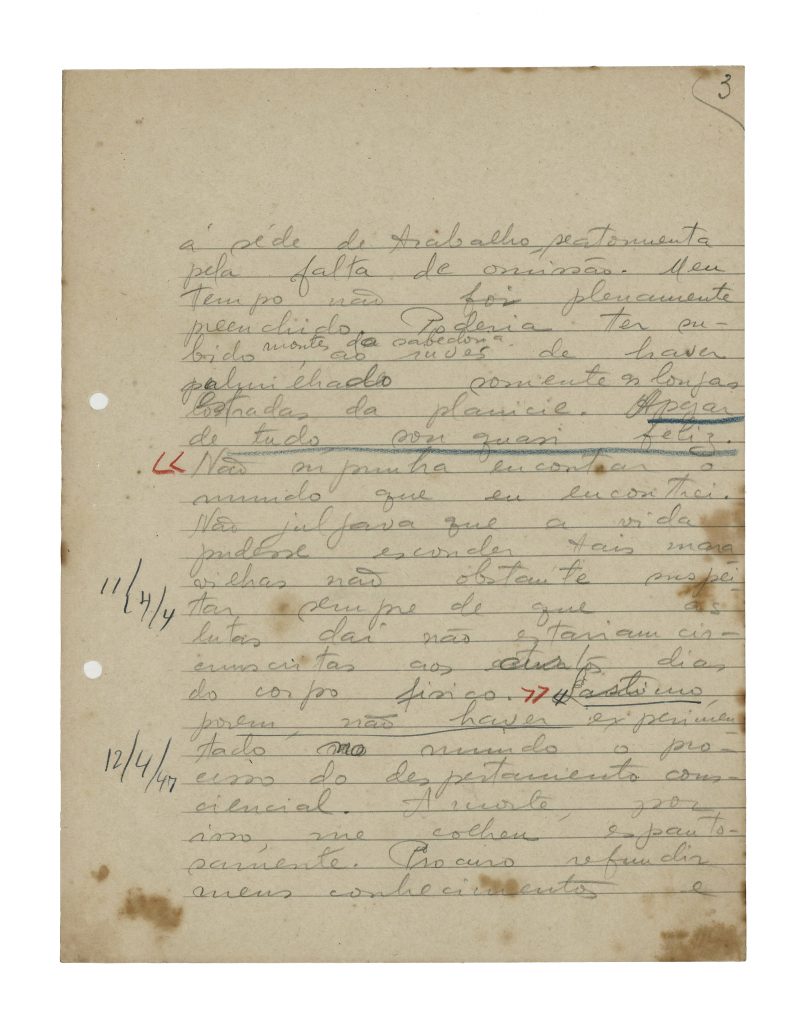 3
á séde de trabalho, me atormenta
pela falta de omissão. Meu
tempo não foi plenamente
preenchido. Poderia ter su-
bido montes da sabedoria,
ao invés de haver
palmilhado somente as longas
estradas da planicie. Apezar
de tudo sou quasi feliz.
« Não supunha encontrar o
mundo que eu encontrei.
Não julgava que a vida
pudesse esconder tais mara
vilhas não obstante suspei
11/4/4
tar sempre de que as
lutas daí não estariam cir-
cunscritas aos curtos dias
do corpo fisico. » Lastimo,
porem, não haver experimen
12/4/47
tado no mundo o pro-
cesso do despertamento cons-
ciencial. A morte, por
isso, me colheu espanto-
samente. Procuro refundir
meus conhecimentos e